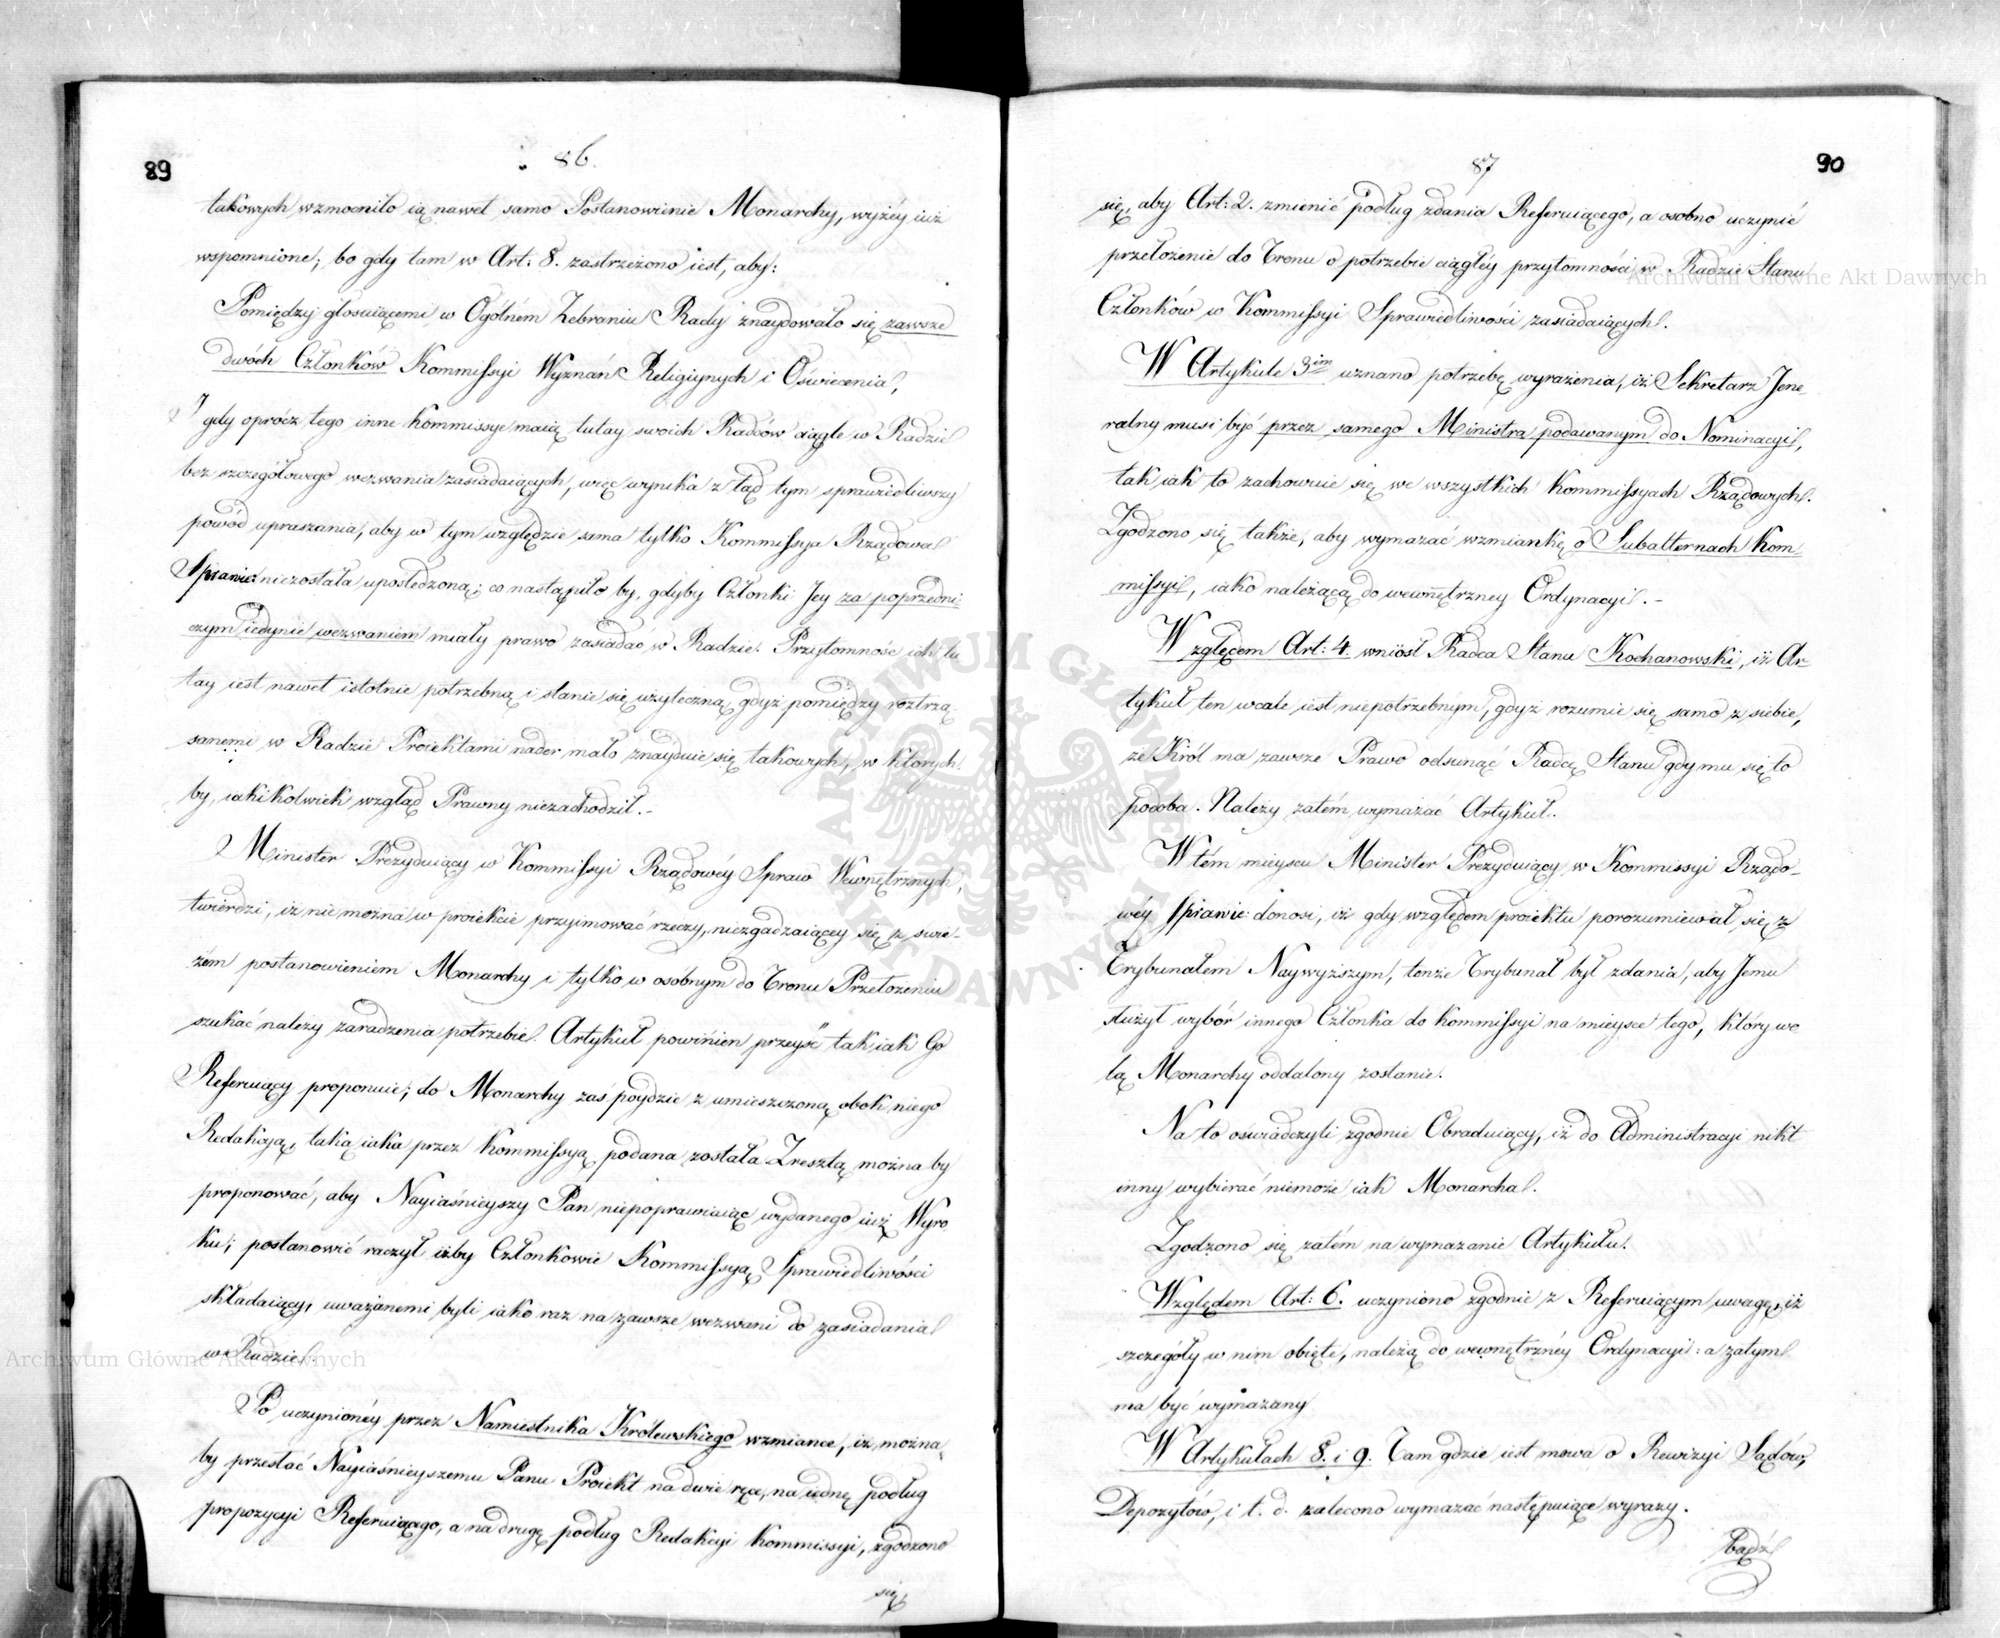 89
86.
takowych wzmocniło ią nawet samo Postanowienie Monarchy, wyżéy iuż
wspomnione; bo gdy tam w Art: 8. zastrzeżono iest, aby:
Pomiędzy głosuiącemi w Ogólném Zebraniu Rady znaydowało się zawsze
dwóch Członków Kommissyi Wyznań Religiynych i Oświecenia,
I gdy oprócz tego inne Kommissye maią tutay swoich Radców ciągle w Radzie
bez szczegółowego wezwania zasiadaiących, więc wynika z tąd tym sprawiedliwszy
powód upraszania, aby w tym względzie sama tylko Kommissya Rządowa
Sprawie: niezostała upośledzoną; co nastąpiło by, gdyby Członki Jey za poprzedni-
czym iedynie wezwaniem miały prawo zasiadać w Radzie. Przytomność ich tu
tay iest nawet istotnie potrzebną i stanie się użyteczną, gdyż pomiędzy roztrzą-
sanemi w Radzie Proiektami nader mało znayduie się takowych, w których
by, iakikolwiek wzgląd Prawny niezachodził.-
Minister Prezyduiący w Kommissyi Rządowéy Spraw Wewnętrznych,
twierdzi, iż nie można w proiekcie przyimować rzeczy, niezgadzaiącey się z świe-
żém postanowieniem Monarchy i tylko w osobnym do Tronu Przełożeniu
szukać należy zaradzenia potrzebie. Artykuł powinien przeyść tak iak Go
Referuiący proponuie; do Monarchy zaś poydzie z umieszczoną obok niego
Redakcyą, taką iaka przez Kommissyą podana została. Zresztą można by
proponować, aby Nayiaśnieyszy Pan niepoprawiaiąc wydanego iuż Wyro
ku; postanowić raczył iżby Członkowie Kommissyą Sprawiedliwości
składaiący, uważanemi byli iako raz na zawsze wezwani do zasiadania
w Radzie.
Po uczynionéy przez Namiestnika Królewskiego wzmiance, iż można
by przesłać Nayiaśnieyszemu Panu Proiekt na dwie ręce, na iednę podług
propozycyi Referuiącego, a na drugę podług Redakcyi Kommissyi, zgodzono
się,
90
87
się, aby Art: 2. zmienić podług zdania Referuiącego, a osobno uczynić
przełożenie do Tronu o potrzebie ciągłéy przytomności w Radzie Stanu
Członków w Kommissyi Sprawiedliwości zasiadaiących.
W Artykule 3im uznano potrzebę wyrażenia, iż Sekretarz Jene-
ralny musi być przez samego Ministra podawanym do Nominacyi,
tak iak to zachowuie się we wszystkich Kommissyach Rządowych.
Zgodzono się także, aby wymazać wzmiankę o Subalternach Kom-
missyi, iako należącą do wewnętrzney Ordynacyi. -
Względem Art: 4. wniósł Radca Stanu Kochanowski, iż Ar-
tykuł ten wcale iest niepotrzebnym, gdyż rozumie się samo z siebie,
że Król ma zawsze Prawo odsunąć Radcę Stanu gdy mu się to
podoba. Należy zatém wymazać Artykuł.
W tém mieyscu Minister Prezyduiący w Kommissyi Rządo-
wéy Sprawie: donosi, iż gdy względem proiektu porozumiewał się z
Trybunałem Naywyższym, tenże Trybunał był zdania, aby Jemu
służył wybór innego Członka do Kommissyi na mieysce tego, który wo
lą Monarchy oddalony zostanie.
Na to oświadczyli zgodnie Obraduiący, iż do Administracyi nikt
inny wybierać niemoże iak Monarcha.
Zgodzono się zatém na wymazanie Artykułu.
Względem Art: 6. uczyniono zgodnie z Referuiącym uwagę, iż
szczegóły w nim obięte, należą do wewnętrznéy Ordynacyi: a zatym
ma być wymazany
W Artykułach 8. i 9. Tam gdzie iest mowa o Rewizyi Sądów,
Depozytów, i t. d. zalecono wymazać następuiące wyrazy.
bądź
Archiwum Główne Akt Dawnych
Archiwum Główne Akt Dawnych
ARCHIWUM GŁÓWNE AKT DAWNYCH